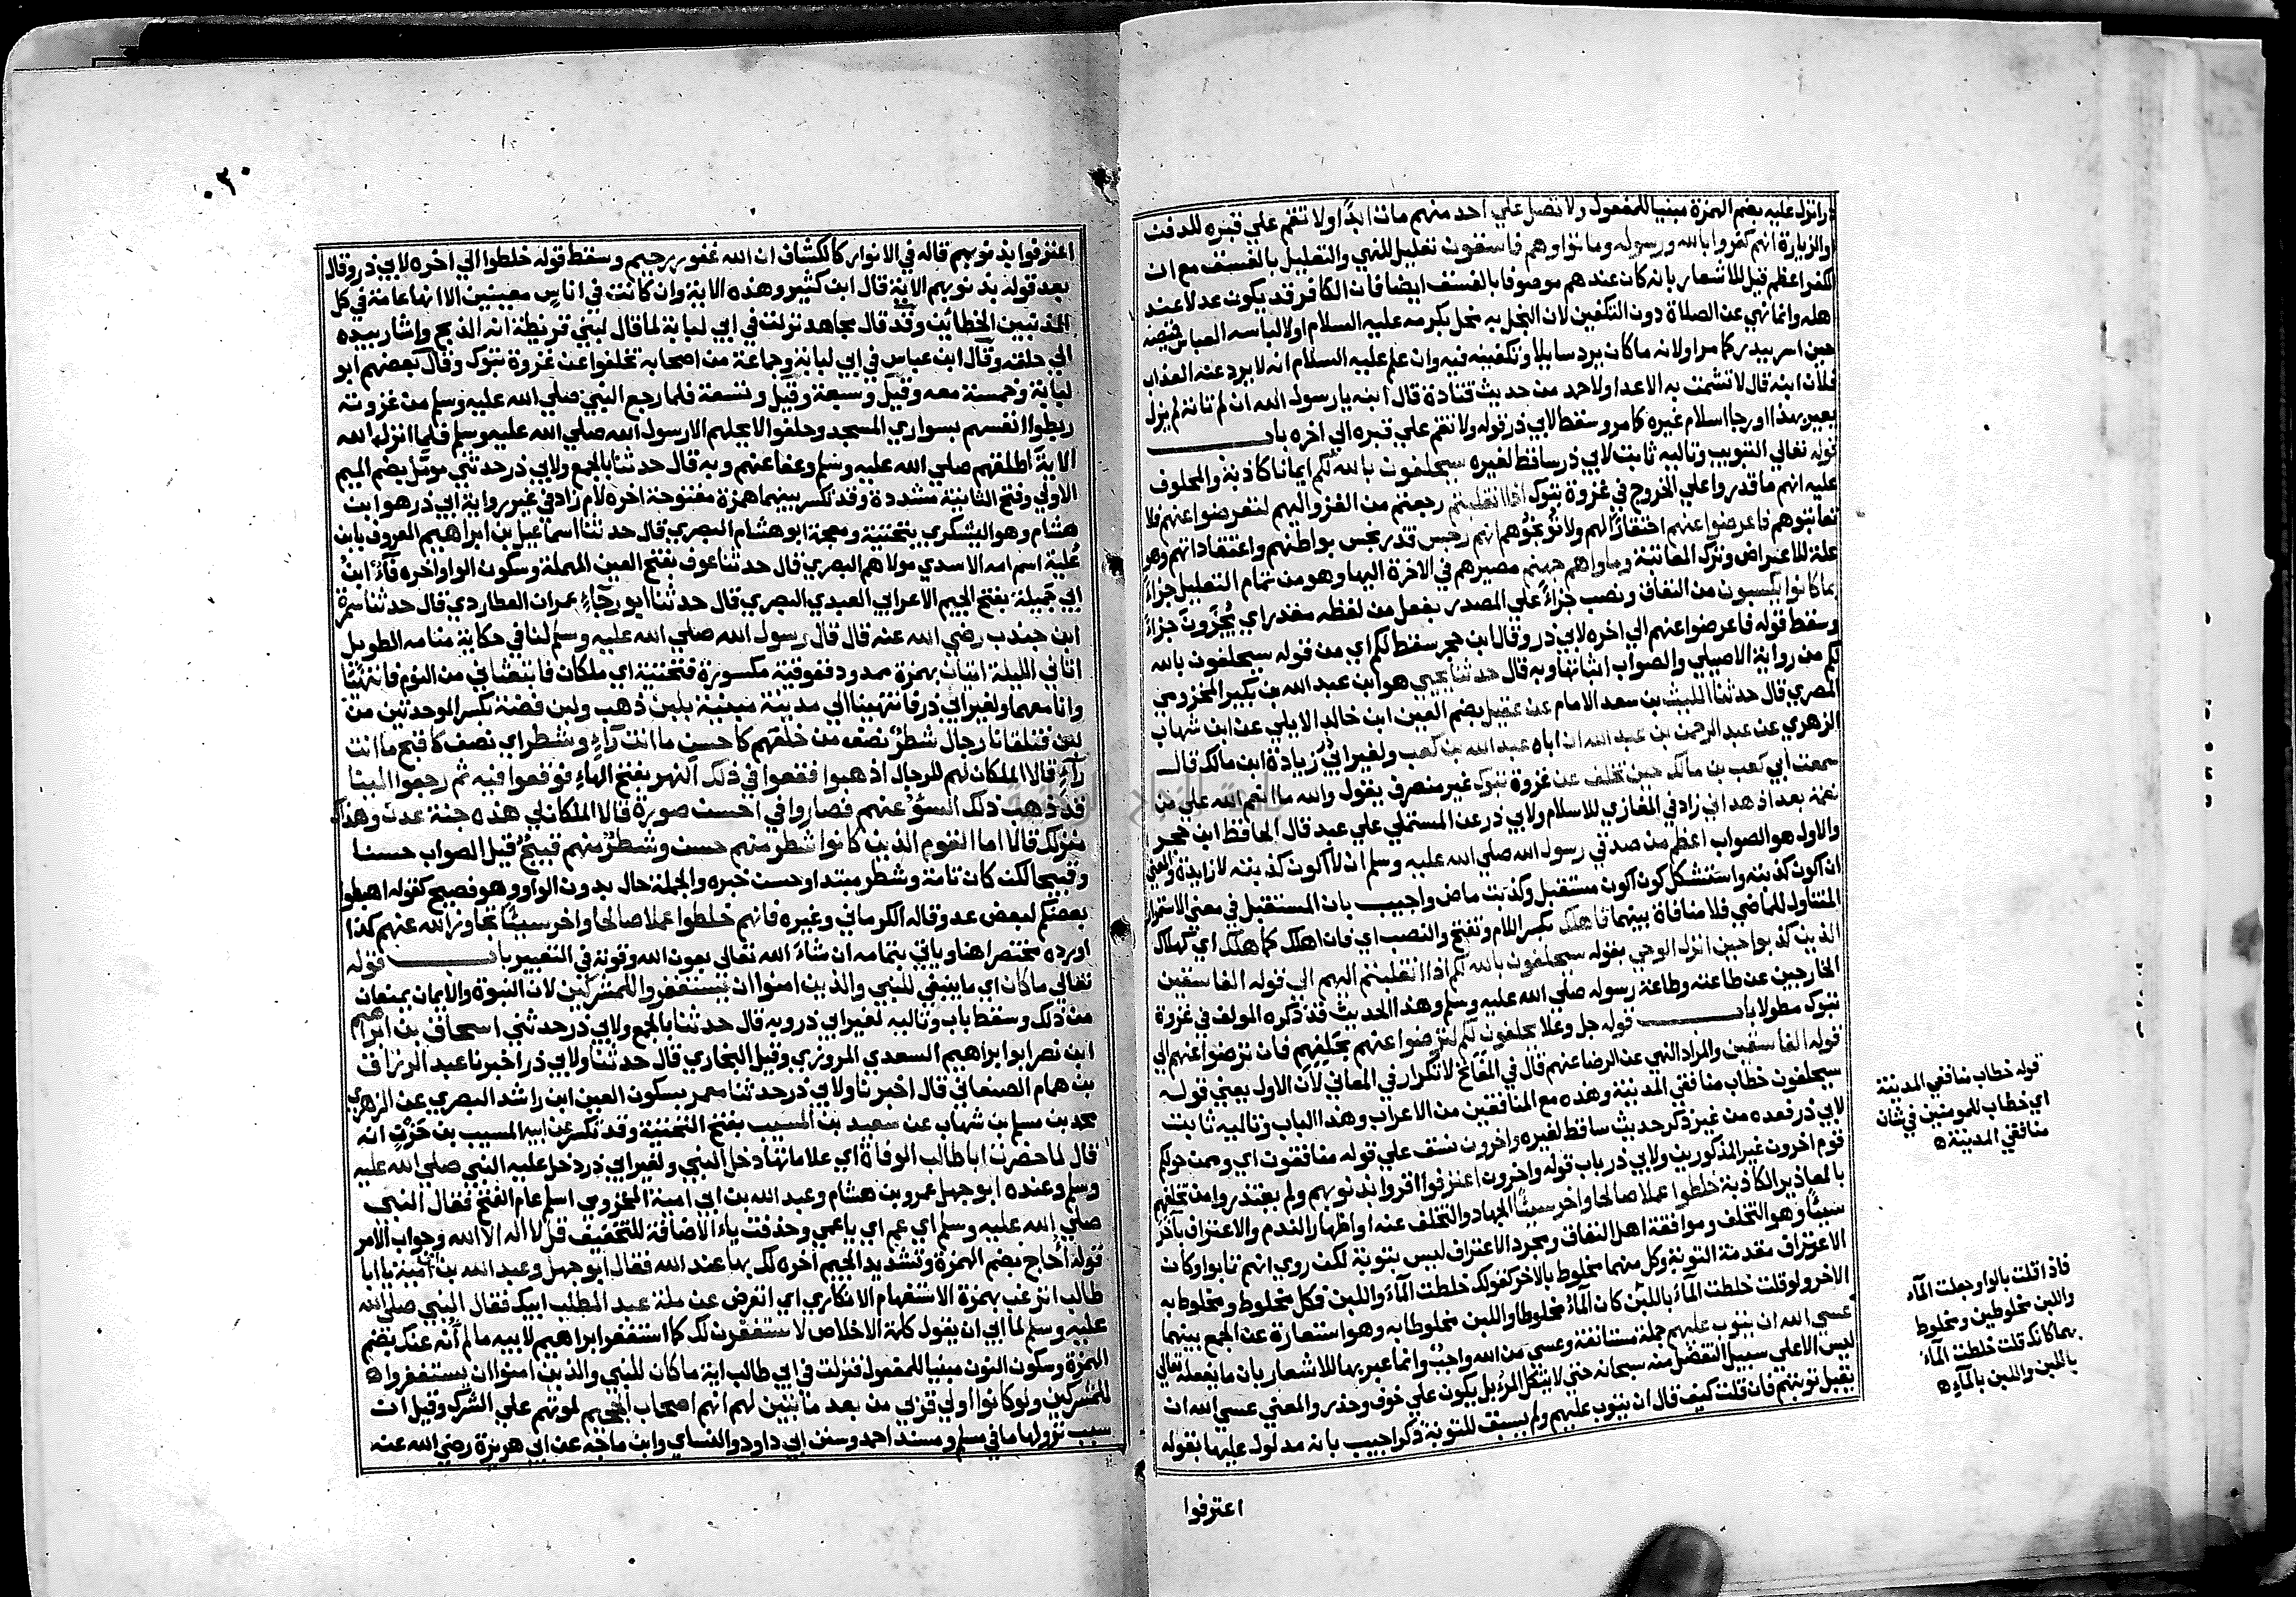 وانزل عليه بضم الهمزة مبنيا للمفعول ولا تصل علي احد منهم مات ابدا ولا تقم علي قبره للدفن
والزيارة انهم كفروا بالله ورسوله وماتوا وهم فاسقون تعليل للنهي والتعليل بالفسق مع ان
الكفر اعظم قيل للاشعار بانه كان عندهم موصوفا بالفسق ايضا فان الكافر قد يكون عدلا عند
اهله وانما نهي عن الصلاة دون التكفين لان البخل به مخل بكرمه عليه السلام او لالباسه العباس قميصه
حين اسر ببدر كما مر او لانه ما كان يرد سايلا وتكفينه فيه وان علم عليه السلام انه لا يرد عنه العذاب
فلان ابنه قال لا تشمت به الاعدا ولاحد من حديث قتادة قال ابنه يارسول الله ان لم تاته لم يزل
يعير بهذا او رجا اسلام غيره كما مر وسقط لابي ذر قوله ولا تقم علي قبره الي اخره باب
قوله تعالي التبويب وتاليه ثابت لابي ذر ساقط لغيره سيحلفون بالله لكم ايمانا كاذبة والمحلوف
عليه انهم ما قدروا علي الخروج في غزوة تبوك اذا انقلبتم رجعتم من الغزو اليهم لتعرضوا عنهم فلا
تعاتبوهم فاعرضوا عنهم احتقارا لهم ولا توبخوهم انهم رجس قذر نجس بواطنهم واعتقاداتهم وهو
علة للاعراض وترك المعاتبة وماواهم جهنم مصيرهم في الاخرة اليها وهو من تمام التعليل جزاء
بما كانوا يكسبون من النفاق ونصب جزاء علي المصدر بفعل من لفظه مقدر اي يجزون جزاء
وسقط قوله فاعرضوا عنهم الي اخره لابي ذر وقال ابن حجر سقط لكم اي من قوله سيحلفون بالله
لكم من رواية الاصيلي والصواب اثباتها وبه قال حدثنا يحيي هو ابن عبد الله بن بكير المخزومي
المصري قال حدثنا الليث بن سعد الامام عن عقيل بضم العين ابن خالد الايلي عن ابن شهاب
الزهري عن عبد الرحمن بن عبد الله ان اباه عبد الله بن كعب ولغير ابي ذر زيادة ابن مالك قال
سمعت ابي كعب بن مالك حين تخلف عن غزوة تبوك غير منصرف يقول والله ما انعم الله علي من
نعمة بعد اذ هداني زاد في المغازي للاسلام ولابي ذر عن المستملي علي عبد قال الحافظ ابن حجر
والاول هو الصواب اعظم من صدقي رسول الله صلي الله عليه وسلم ان لا اكون كذبته لا زايدة والمعني
ان اكون كذبته واستشكل كون اكون مستقبل وكذبت ماض واجيب بان المستقبل في معني الاستمرار
المتناول للماضي فلا منافاة بينهما فاهلك بكسر اللام وتفتح والنصب اي فان اهلك كما هلك اي كهلاك
الذين كذبوا حين انزل الوحي بقوله سيحلفون بالله لكم اذا انقلبتم اليهم الي قوله الفاسقين
الخارجين عن طاعته وطاعة رسوله صلي الله عليه وسلم وهذا الحديث قد ذكره المولف في غزوة
تبوك مطولا باب قوله جل وعلا يحلفون لكم لترضوا عنهم بحلفهم فان ترضوا عنهم الي
قوله الفاسقين والمراد النهي عن الرضا عنهم قال في المفاتح لا تكرار في المعاني لان الاول يعني قوله
سيحلفون خطاب منافقي المدينة وهذه مع المنافقين من الاعراب وهذا الباب وتاليه ثابت
لابي ذر فعده من غير ذكر حديث ساقط لغيره واخرون نسق علي قوله منافقون اي وممن حولكم
قوم اخرون غير المذكورين ولابي ذر باب قوله واخرون اعترفوا اقروا بذنوبهم ولم يعتذروا من تخلفهم
بالمعاذير الكاذبة خلطوا عملا صالحا واخر سيئا الجهاد والتخلف عنه او اظهار الندم والاعتراف بآخر
سيئا وهو التخلف وموافقة اهل النفاق ومجرد الاعتراف ليس بتوبة لكن روي انهم تابوا وكان
الاعتراف مقدمة التوبة وكل منهما مخلوط بالاخر كقولك خلطت الماء واللبن فكل مخلوط ومخلوط به
الاخر ولو قلت خلطت الماء باللبن كان الماء مخلوطا واللبن مخلوطا به وهو استعارة عن الجمع بينهما
عسي الله ان يتوب عليهم جملة مستانفة وعسي من الله واجب وانما عبر بها للاشعار بان ما يفعله تعالي
ليس الا علي سبيل التفضل منه سبحانه حتي لا يتكل المرء بل يكون علي خوف وحذر والمعني عسي الله ان
يقبل توبتهم فان قلت كيف قال ان يتوب عليهم ولم يسبق للتوبة ذكر اجيب بانه مدلول عليها بقوله
اعترفوا
قوله خطاب منافقي المدينة
اي خطاب للمومنين في شان
منافقي المدينة
فاذا قلت بالواو جعلت الماء
واللبن مخلوطين ومخلوط
بهما كانك قلت خلطت الماء
باللبن واللبن بالماء
٠٢٠
اعترفوا بذنوبهم قاله في الانوار كالكشاف ان الله غفور رحيم وسقط قوله خلطوا الي اخره لابي ذر وقال
بعد قوله بذنوبهم الاية قال ابن كثير وهذه الاية وان كانت في اناس معينين الا انها عامة في كل
المذنبين الخطائين وقد قال مجاهد نزلت في ابي لبابة لما قال لبني قريظة انه الذبح واشار بيده
الي حلقه وقال ابن عباس في ابي لبابة وجماعة من اصحابه تخلفوا عن غزوة تبوك وقال بعضهم ابو
لبابة وخمسة معه وقيل وسبعة وقيل وتسعة فلما رجع النبي صلي الله عليه وسلم من غزوته
ربطوا انفسهم بسواري المسجد وحلفوا لا يحلهم الا رسول الله صلي الله عليه وسلم فلما انزل الله
الاية اطلقهم صلي الله عليه وسلم وعفا عنهم وبه قال حدثنا بالجمع ولابي ذر حدثني مومل بضم الميم
الاولي وفتح الثانية مشددة وقد تكسر بينهما همزة مفتوحة اخره لام زاد في غير رواية ابي ذر هو ابن
هشام وهو اليشكري بتحتية ومعجمة ابو هشام البصري قال حدثنا اسماعيل بن ابراهيم المعروف بابن
علية اسم امه الاسدي مولاهم البصري قال حدثنا عوف بفتح العين المهملة وسكون الواو اخره فاء ابن
ابي جميلة بفتح الجيم الاعرابي العبدي البصري قال حدثنا ابو رجاء عمران العطاردي قال حدثنا سمرة
ابن جندب رضي الله عنه قال قال رسول الله صلي الله عليه وسلم لنا في حكاية منامه الطويل
اتاني الليلة اتيان بهمزة ممدود ففوقية مكسورة فتحتية اي ملكان فابتعثاني من النوم فانتهينا
وانا معهما ولغير ابي ذر فانتهينا الي مدينة مبنية بلبن ذهب ولبن فضة بكسر الموحدتين من
لبن فتلقانا رجال شطر نصف من خلقهم كاحسن ما انت رآء وشطر اي نصف كاقبح ما انت
رآء قالا الملكان لهم للرجال اذهبوا فقعوا في ذلك النهر بفتح الهاء فوقعوا فيه ثم رجعوا الينا
قد ذهب ذلك السوء عنهم فصاروا في احسن صورة قالا الملكان لي هذه جنة عدن وهذاك
منزلك قالا اما القوم الذين كانوا شطر منهم حسن وشطر منهم قبيح قيل الصواب حسنا
وقبيحا لكن كان تامة وشطر مبتدا وحسن خبره والجملة حال بدون الواو وهو فصيح كقوله اهبطوا
بعضكم لبعض عدو قاله الكرماني وغيره فانهم خلطوا عملا صالحا واخر سيئا تجاوز الله عنهم كذا
اورده مختصرا هنا وياتي بتمامه ان شاء الله تعالي بعون الله وقوته في التعبير باب قوله
تعالي ما كان اي ما ينبغي للنبي والذين امنوا ان يستغفروا للمشركين لان النبوة والايمان يمنعان
من ذلك وسقط باب وتاليه لغير ابي ذر وبه قال حدثنا بالجمع ولابي ذر حدثني اسحاق بن ابراهيم
ابن نصر ابو ابراهيم السعدي المروزي وقيل البخاري قال حدثنا ولابي ذر اخبرنا عبد الرزاق
بن همام الصنعاني قال اخبرنا ولابي ذر حدثنا معمر بسكون العين ابن راشد البصري عن الزهري
محمد بن مسلم بن شهاب عن سعيد بن المسيب بفتح التحتية وقد تكسر عن ابيه المسيب بن حزن انه
قال لما حضرت ابا طالب الوفاة اي علاماتها دخل النبي ولغير ابي ذر دخل عليه النبي صلي الله عليه
وسلم وعنده ابو جهل عمرو بن هشام وعبد الله بن ابي امية المخزومي اسلم عام الفتح فقال النبي
صلي الله عليه وسلم اي عم اي ياعمي وحذفت ياء الاضافة للتخفيف قل لا اله الا الله وجواب الامر
قوله احاج بضم الهمزة وتشديد الجيم اخره لك بها عند الله فقال ابو جهل وعبد الله بن ابي امية يا ابا
طالب اترغب بهمزة الاستفهام الانكاري اي اتعرض عن ملة عبد المطلب ابيك فقال النبي صلي الله
عليه وسلم لما ابي ان يقول كلمة الاخلاص لاستغفرن لك كما استغفر ابراهيم لابيه ما لم انه عنك بضم
الهمزة وسكون النون مبنيا للمفعول فنزلت في ابي طالب اية ما كان للنبي والذين امنوا ان يستغفروا
للمشركين ولو كانوا اولي قربي من بعد ما تبين لهم انهم اصحاب الجحيم لموتهم علي الشرك وقيل ان
سبب نزولها ما في مسلم ومسند احمد وسنن ابي داود والنساي وابن ماجه عن ابي هريرة رضي الله عنه